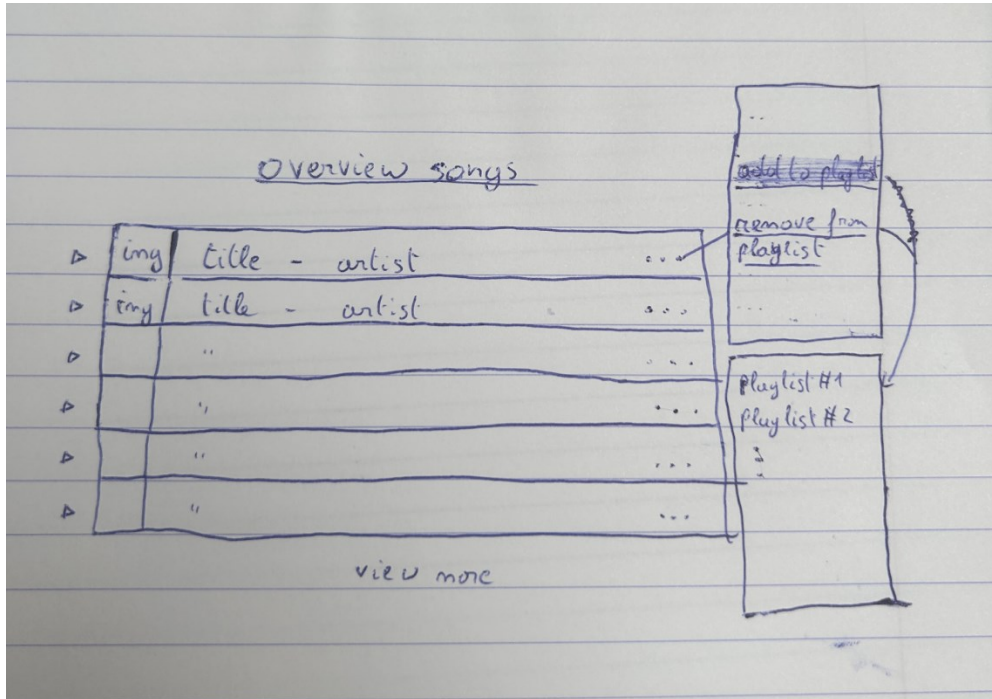 overview songs
img title - artist ...
img title - artist ...
" ...
" ...
" ...
" ...
view more
..
add to playlist
remove from
playlist
...
playlist #1
playlist #2